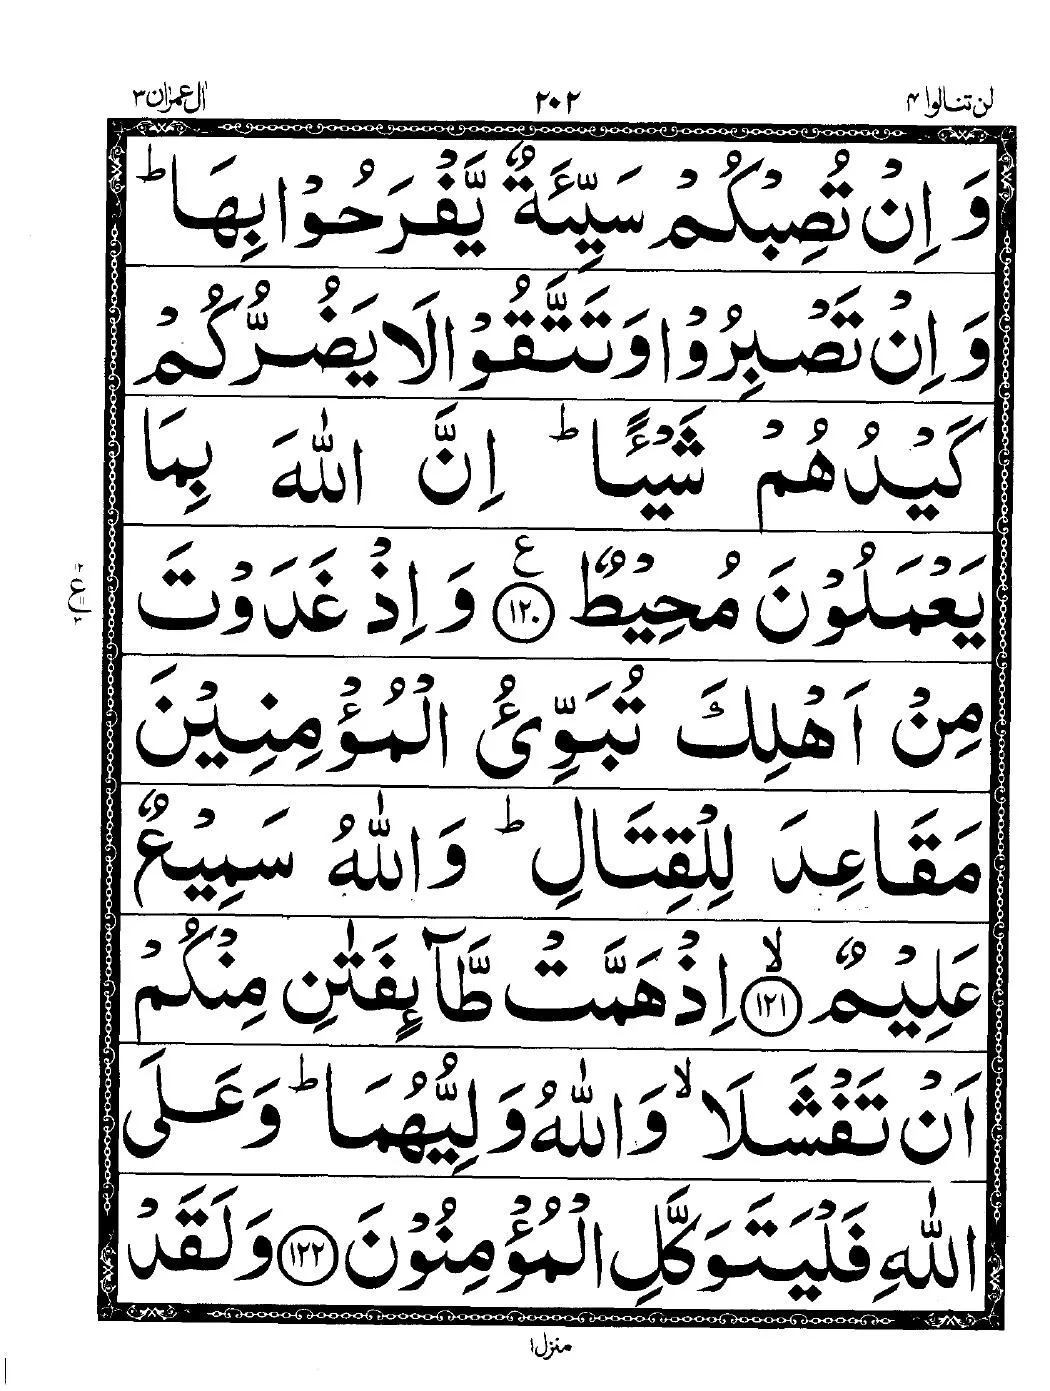 لن تنالوا ۴ ۲۰۲ اٰل عمرٰن ۳
وَ اِنْ تُصِبْكُمْ سَیِّئَةٌ یَّفْرَحُوْا بِهَا ؕ
وَ اِنْ تَصْبِرُوْا وَ تَتَّقُوْا لَا یَضُرُّكُمْ
كَیْدُهُمْ شَیْـًٔا ؕ اِنَّ اللّٰهَ بِمَا
یَعْمَلُوْنَ مُحِیْطٌ ۱۲۰ ع وَ اِذْ غَدَوْتَ
مِنْ اَهْلِكَ تُبَوِّئُ الْمُؤْمِنِیْنَ
مَقَاعِدَ لِلْقِتَالِ ؕ وَ اللّٰهُ سَمِیْعٌ
عَلِیْمٌ ۱۲۱ ۙ اِذْ هَمَّتْ طَّآىِٕفَتٰنِ مِنْكُمْ
اَنْ تَفْشَلَا ۙ وَ اللّٰهُ وَلِیُّهُمَا ؕ وَ عَلَی
اللّٰهِ فَلْیَتَوَكَّلِ الْمُؤْمِنُوْنَ ۱۲۲ وَ لَقَدْ
منزل ۱